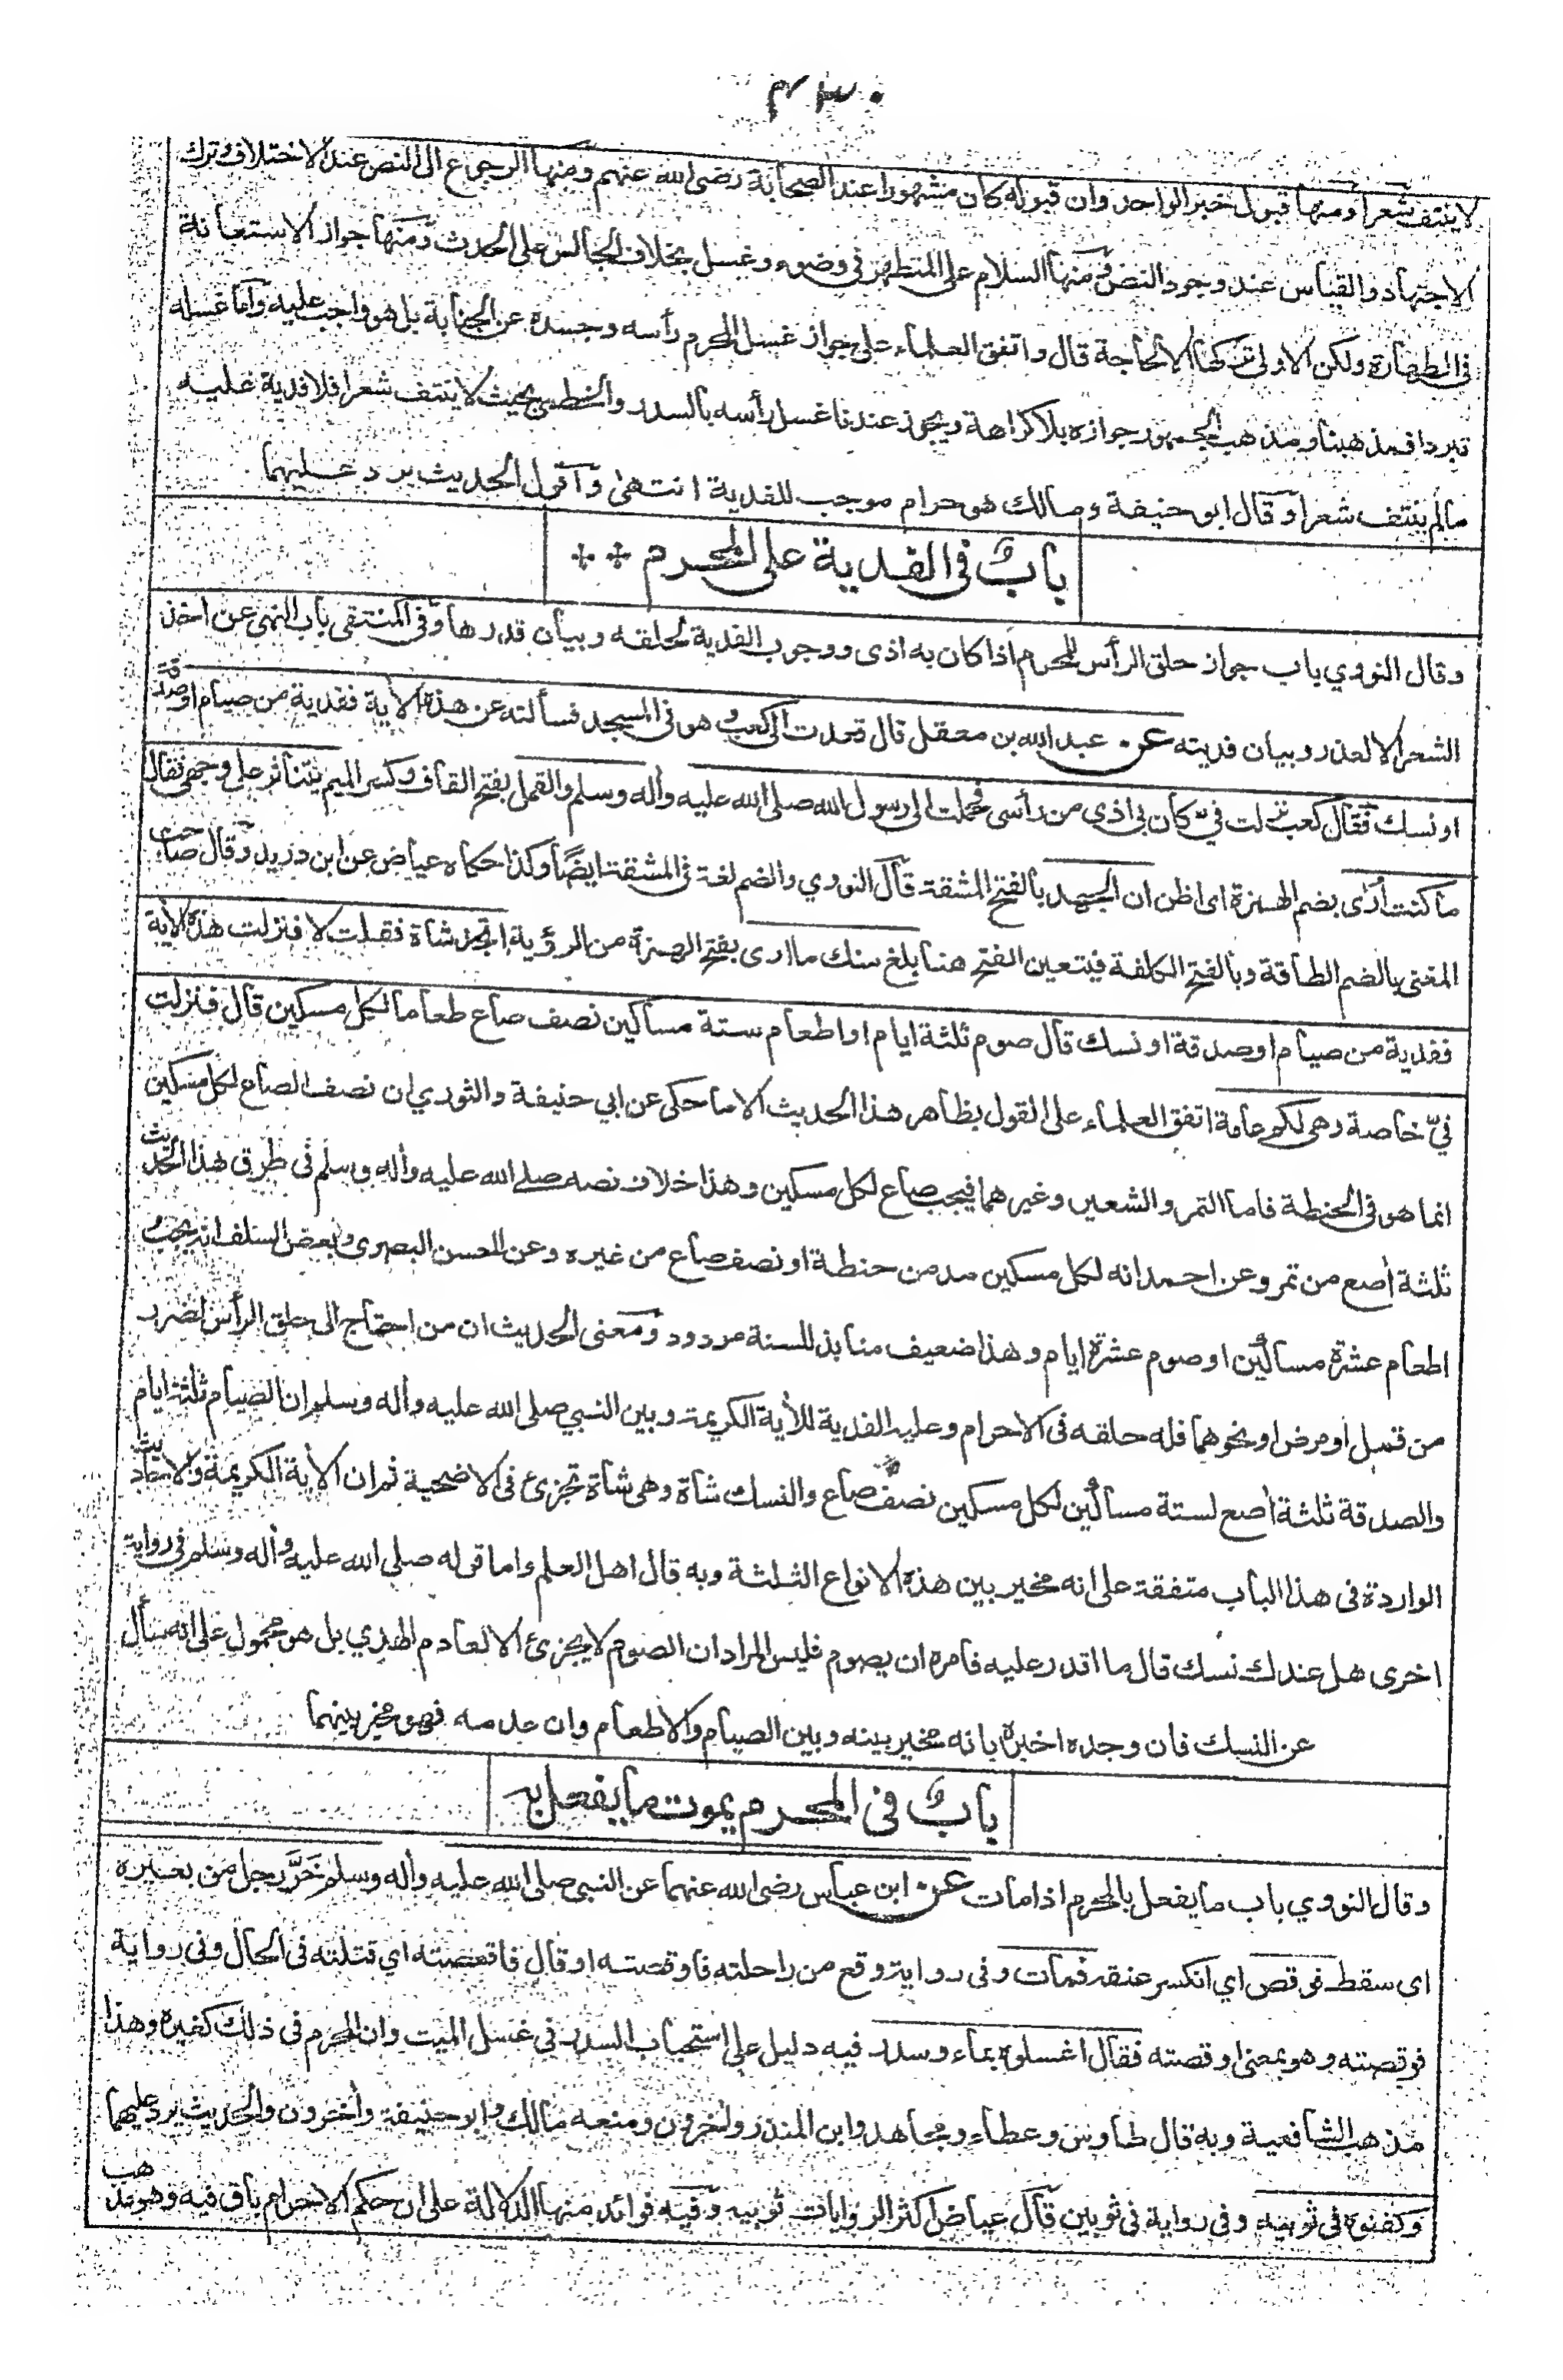 ٤٣٠
لا ينتف شعرا ومنها قبول خبر الواحد وان قبوله كان مشهورا عند الصحابة رضى الله عنهم ومنها الرجوع الى النص عند الاختلاف وترك
الاجتهاد والقياس عند وجود النص ومنها السلام على المتطهر فى وضوء وغسل بخلاف الجالس على الحدث ومنها جواز الاستعانة
فى الطهارة ولكن الاولى تركها الا لحاجة قال واتفق العلماء على جواز غسل المحرم رأسه وجسده عن الجنابة بل هو واجب عليه وأما غسله
تبردا فمذهبنا ومذهب الجمهور جوازه بلا كراهة ويجوز عندنا غسل رأسه بالسدر والخطمى بحيث لا ينتف شعرا فلا فدية عليه
مالم ينتف شعرا وقال ابو حنيفة ومالك هو حرام موجب للفدية انتهى وأقول الحديث يرد عليهما
باب فى الفدية على المحرم
وقال النووي باب جواز حلق الرأس للمحرم اذا كان به اذى ووجوب الفدية لحلقه وبيان قدرها وفى المنتقى باب النهى عن اخذ
الشعر الا لعذر وبيان فديته عن عبد الله بن معقل قال قعدت الى كعب وهو فى المسجد فسألته عن هذه الأية ففدية من صيام او صدقة
او نسك فقال كعب نزلت فيّ كان بى اذى من رأسى فحملت الى رسول الله صلى الله عليه وأله وسلم والقمل بفتح القاف وكسر الميم يتناثر على وجهى فقال
ما كنت أرى بضم الهمزة اى اظن ان الجهد بالفتح المشقة قال النووي والضم لغة فى المشقة ايضا وكذا حكاه عياض عن ابن دريد وقال صاحب
المغنى بالضم الطاقة وبالفتح الكلفة فيتعين الفتح هنا بلغ منك ما ارى بفتح الهمزة من الرؤية اتجد شاة فقلت لا فنزلت هذه الأية
ففدية من صيام او صدقة او نسك قال صوم ثلثة ايام او اطعام ستة مساكين نصف صاع طعاما لكل مسكين قال فنزلت
فيّ خاصة وهى لكم عامة اتفق العلماء على القول بظاهر هذا الحديث الا ما حكى عن ابي حنيفة والثوري ان نصف الصاع لكل مسكين
انما هو فى الحنطة فاما التمر والشعير وغيرهما فيجب صاع لكل مسكين وهذا خلاف نصه صلى الله عليه وأله وسلم فى طرق هذا الحديث
ثلثة أصع من تمر وعن احمد انه لكل مسكين مد من حنطة او نصف صاع من غيره وعن الحسن البصرى وبعض السلف انه يجب
اطعام عشرة مساكين او صوم عشرة ايام وهذا ضعيف منابذ للسنة مردود ومعنى الحديث ان من احتاج الى حلق الرأس لضرر
من قمل او مرض او نحوهما فله حلقه فى الاحرام وعليه الفدية للأية الكريمة وبين النبي صلى الله عليه وأله وسلم ان الصيام ثلثة ايام
والصدقة ثلثة أصع لستة مساكين لكل مسكين نصف صاع والنسك شاة وهى شاة تجزئ فى الاضحية ثم ان الأية الكريمة والاحاديث
الواردة فى هذا الباب متفقة على انه مخير بين هذه الانواع الثلثة وبه قال اهل العلم واما قوله صلى الله عليه وأله وسلم فى رواية
اخرى هل عندك نسك قال ما اقدر عليه فامره ان يصوم فليس المراد ان الصوم لا يجزئ الا لعادم الهدي بل هو محمول على انه سأل
عن النسك فان وجده اخبره بانه مخير بينه وبين الصيام والاطعام وان عدمه فهو مخير بينهما
باب فى المحرم يموت ما يفعل به
وقال النووي باب ما يفعل بالمحرم اذا مات عن ابن عباس رضى الله عنهما عن النبى صلى الله عليه وأله وسلم خرّ رجل من بعيره
اي سقط فوقص اي انكسر عنقه فمات وفى رواية وقع من راحلته فاوقصته او قال فاقعصته اي قتلته فى الحال وفى رواية
فوقصته وهو بمعنى اوقصته فقال اغسلوه بماء وسدر فيه دليل على استحباب السدر في غسل الميت وان المحرم فى ذلك كغيره وهذا
مذهب الشافعية وبه قال طاوس وعطاء ومجاهد وابن المنذر وأخرون ومنعه مالك وابو حنيفة وأخرون والحديث يرد عليهما
وكفنوه فى ثوبيه وفى رواية فى ثوبين قال عياض اكثر الروايات ثوبيه وفيه فوائد منها الدلالة على ان حكم الاحرام باق فيه وهو مذهب